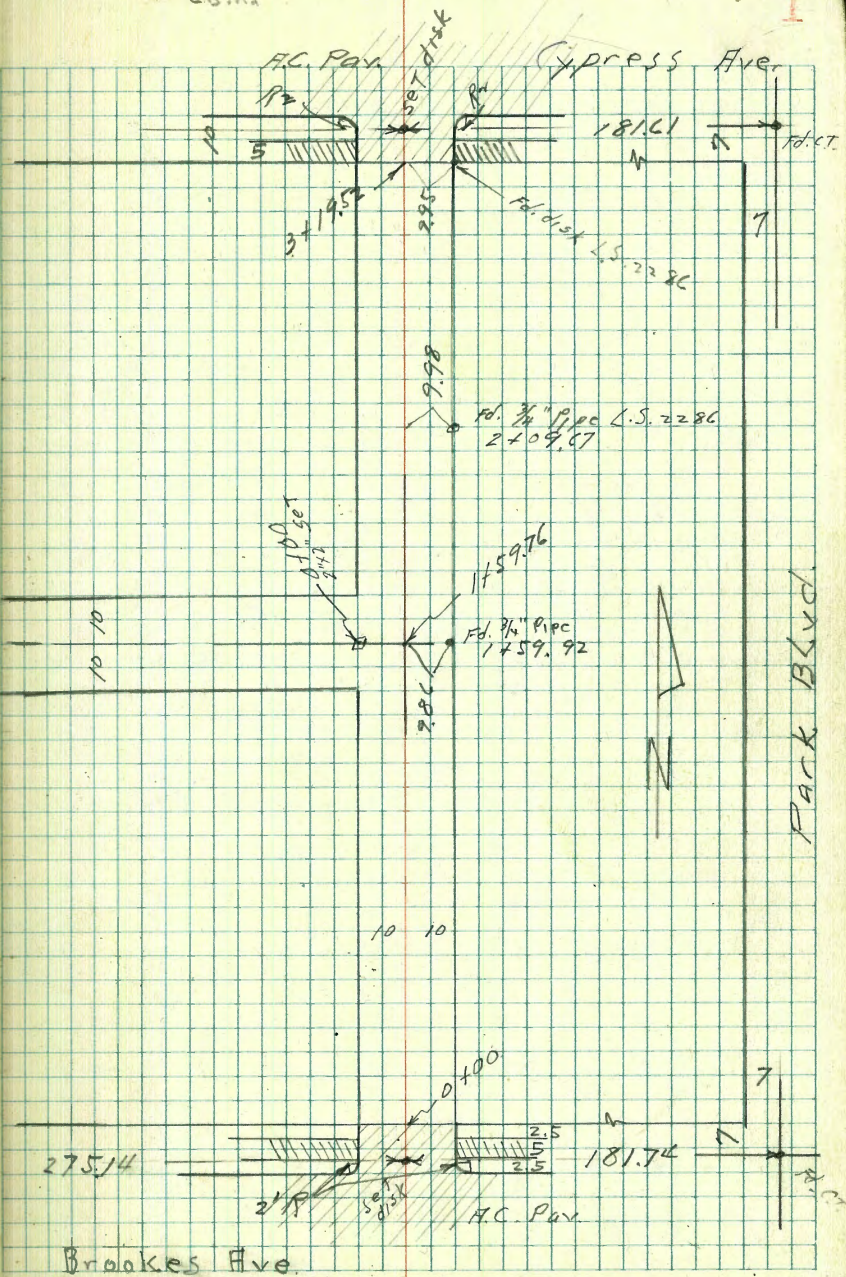 1
A.C. Pav.
Set disk
Cypress Ave.
R2
R2
10
5
181.61
7
Fd. C.T.
3+19.52
9.95
Fd. disk L.S. 2286
7
9.98
Fd. 3/4" Pipe L.S. 2286
2+09.67
0+00
2"x2" set
1+59.76
10
10
Fd. 3/4" Pipe
1+59.92
9.86
N
Park Blvd.
10 10
0+00
7
2.5
5
2.5
181.74
7
275.14
2' R
Set
disk
Fd. C.T.
A.C. Pav.
Brookes Ave.